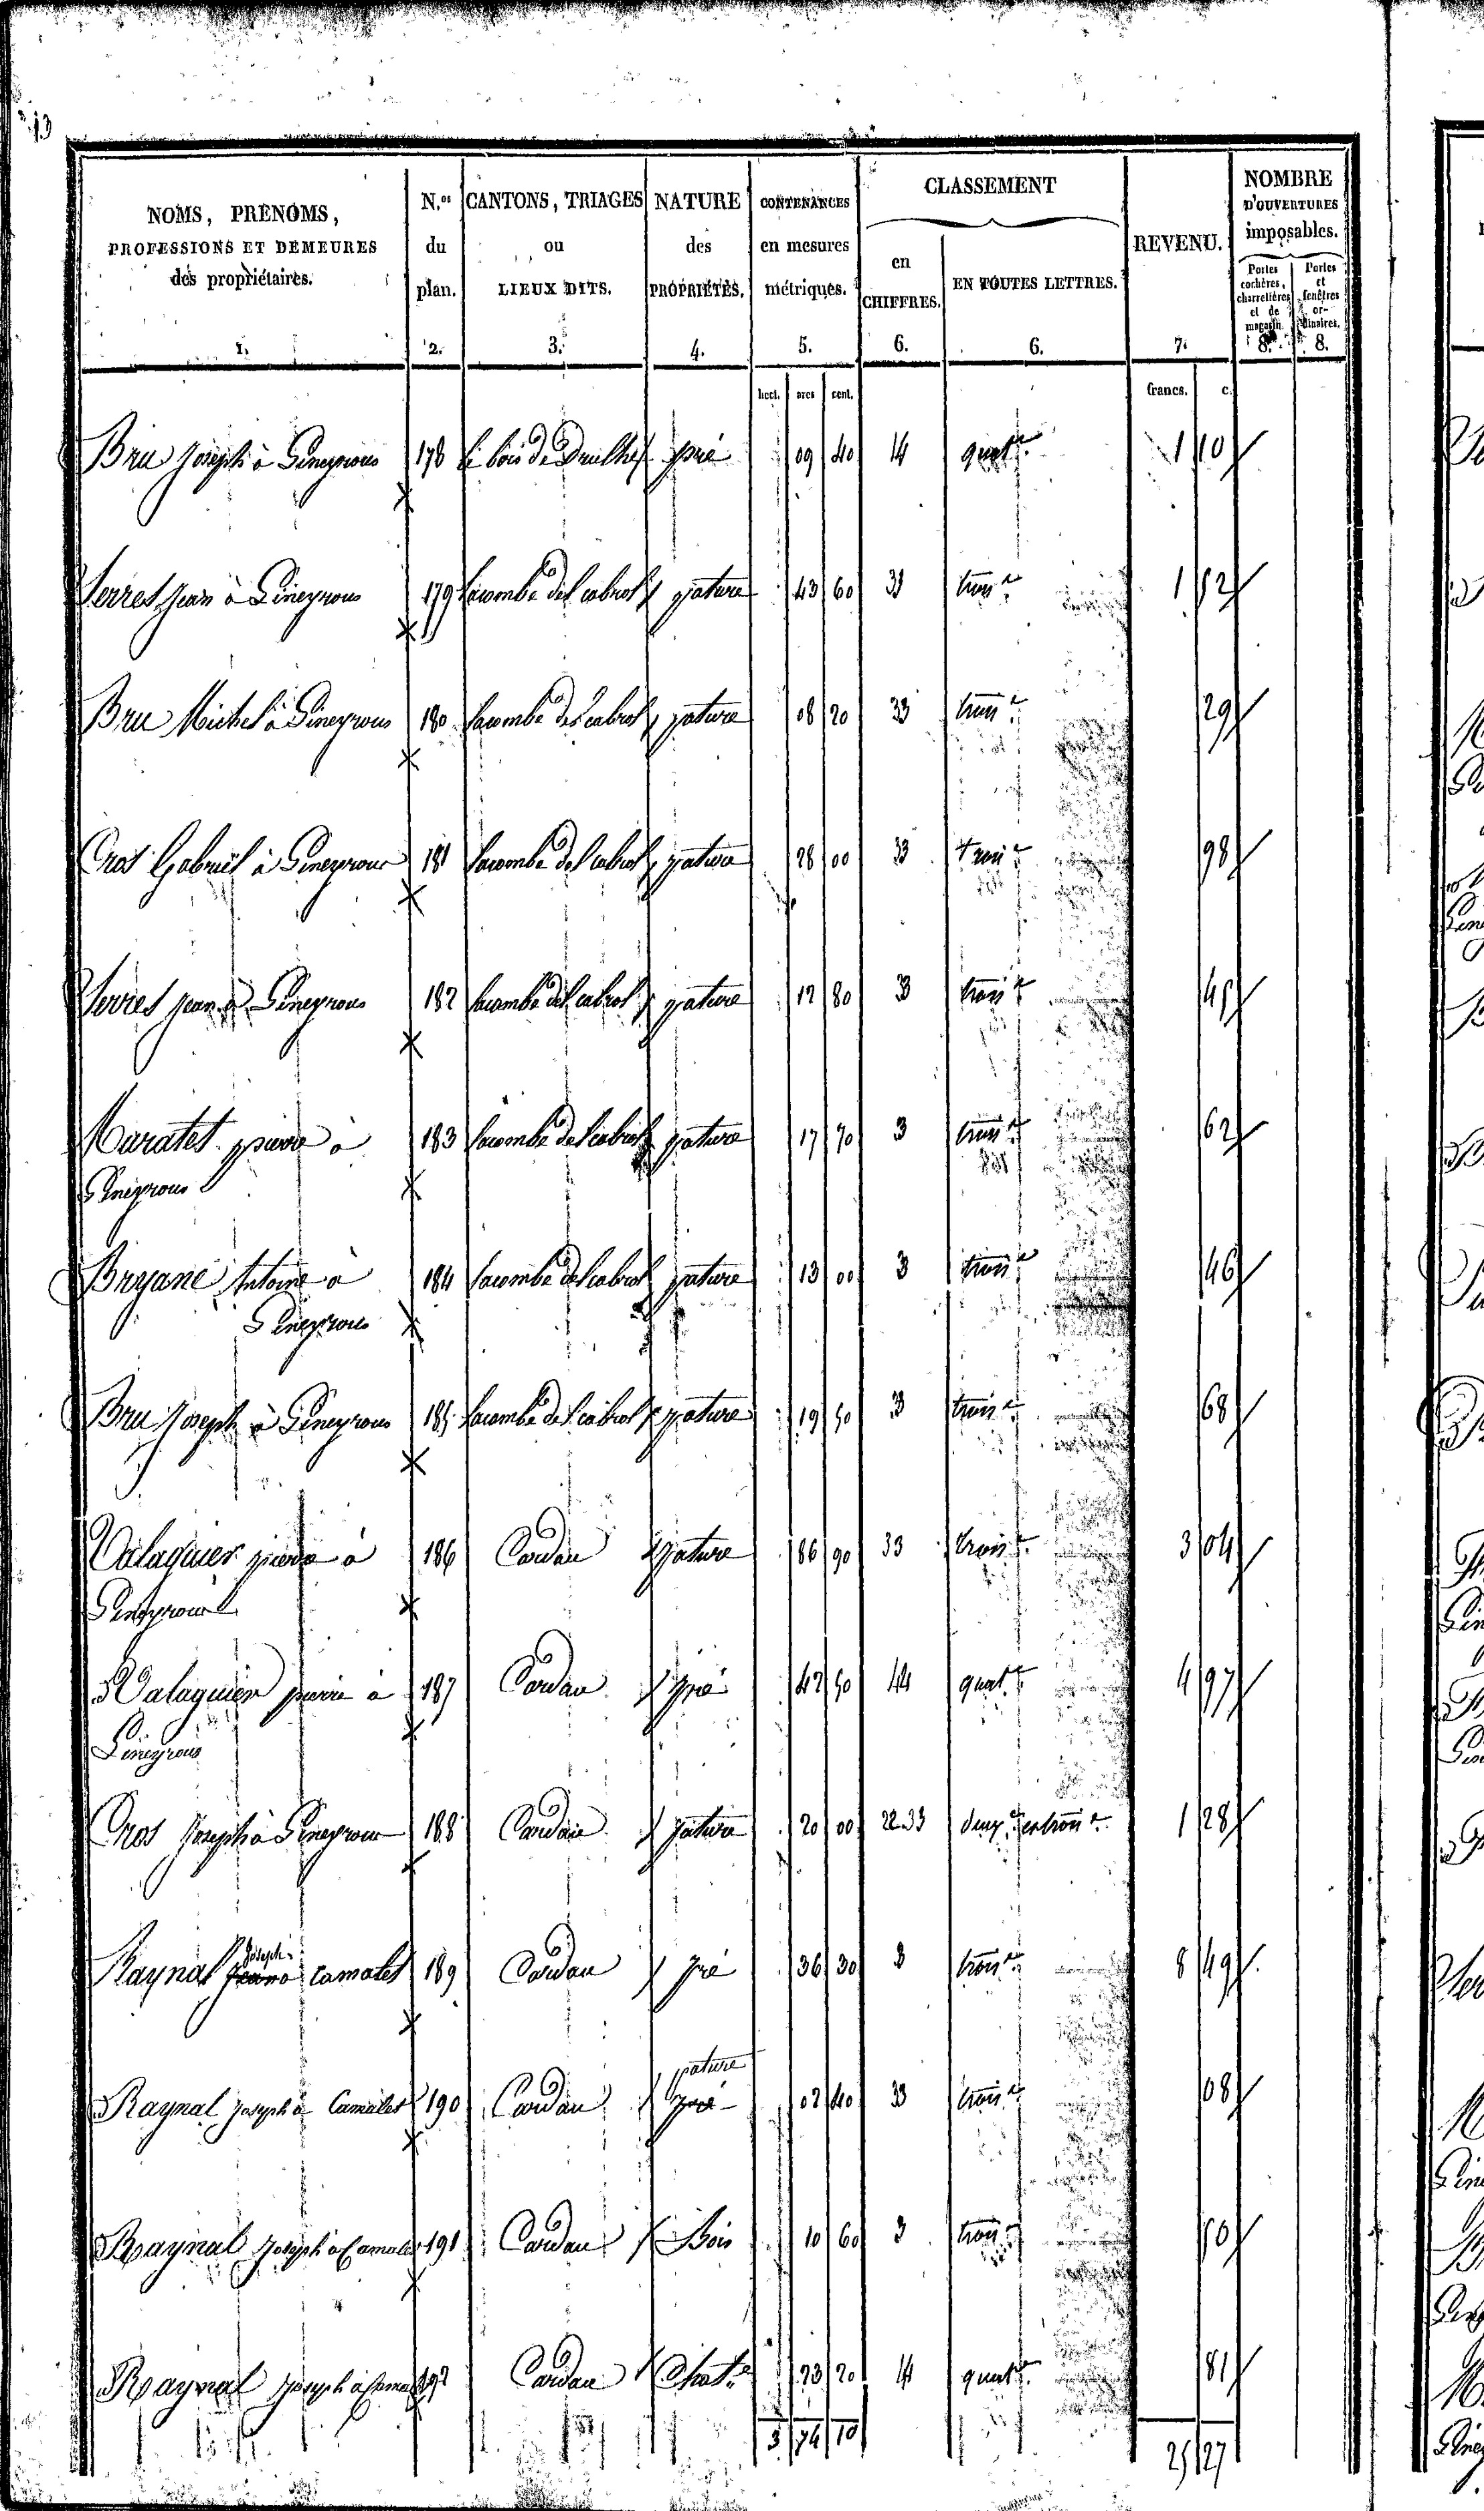 13
NOMS, PRÉNOMS, PROFESSIONS ET DEMEURES des propriétaires. 1.
N.os du plan. 2.
CANTONS, TRIAGES ou LIEUX DITS. 3.
NATURE des PROPRIÉTÉS. 4.
CONTENANCES en mesures métriques. 5.
CLASSEMENT
en CHIFFRES. 6.
EN TOUTES LETTRES. 6.
REVENU. 7.
NOMBRE D'OUVERTURES imposables.
Portes cochères, charretières et de magasin. 8.
Portes et fenêtres ordinaires. 8.
hect. ares cent. francs. c.
Bru Joseph à Gineyrous 178 le bois de pré 09 40 4 quat.e 1 10
Serres Jean à Gineyrous 179 Lacombe del cabrol pature 43 60 3 trois.e 1 52
Bru Michel à Gineyrous 180 Lacombe del cabrol pature 08 20 3 trois.e 29
Cros Gabriel à Gineyrous 181 Lacombe del cabrol pature 28 00 3 trois.e 98
Serres Jean à Gineyrous 182 Lacombe del cabrol pature 12 80 3 trois.e 45
Maratet pierre à 183 Lacombe del cabrol pature 17 70 3 trois.e 62
Gineyrous
Bryane Antoine à 184 Lacombe del cabrol pature 13 00 3 trois.e 46
Gineyrous
Bru Joseph à Gineyrous 185 Lacombe del cabrol pature 19 50 3 trois.e 68
Valaguier pierre à 186 Cardau pature 86 90 3 trois.e 3 04
Gineyrous
Valaguier pierre à 187 Cardau pré 42 50 4 quat.e 4 97
Gineyrous
Cros Joseph à Gineyrous 188 Cardau pature 20 00 2.3 deux.e et trois.e 1 28
Joseph
Raynal camalet 189 Cardau pré 36 30 3 trois.e 8 49
pature
Raynal Joseph à Camalet 190 Cardau pré 02 40 3 trois.e 08
Raynal Joseph à Camalet 191 Cardau Bois 10 60 3 trois.e 50
Raynal Joseph à 192 Cardau Chat.e 23 20 4 quat.e 81
3 74 10
25 27